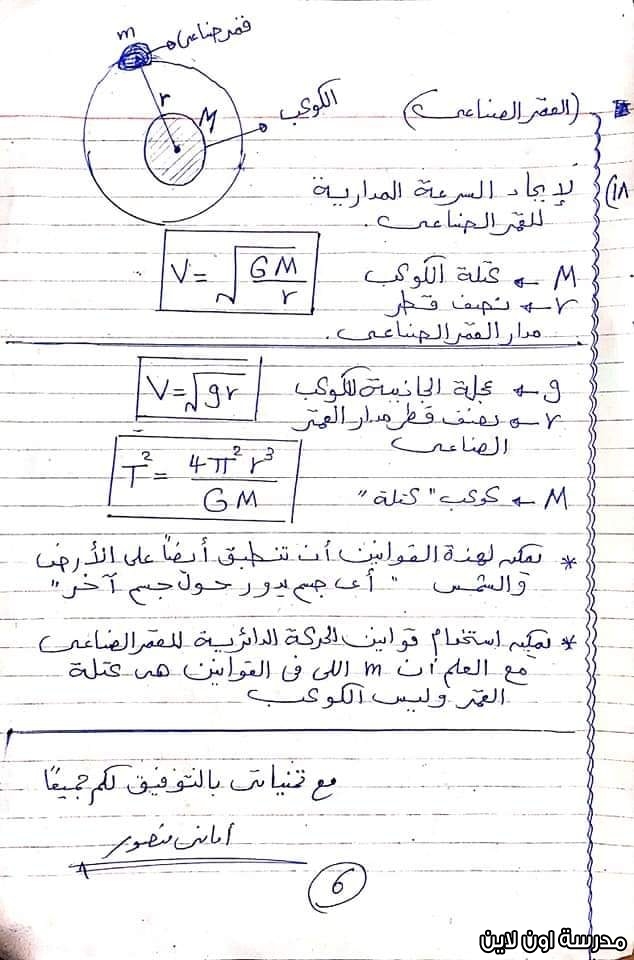 m
قمر صناعى
r
M
الكوكب
(القمر الصناعى)
١٨) لإيجاد السرعة المدارية
للقمر الصناعى.
V = √GM/r
M ← كتلة الكوكب
r ← نصف قطر
مدار القمر الصناعى.
V = √gr
g ← عجلة الجاذبية للكوكب
r ← نصف قطر مدار القمر
الصناعى
T² = 4π² r³/GM
M ← كوكب "كتلة"
* يمكن لهذة القوانين أن تنطبق أيضاً على الأرض
والشمس "أى جسم يدور حول جسم آخر"
* يمكن استخدام قوانين الحركة الدائرية للقمر الصناعى
مع العلم أن m اللى فى القوانين هى كتلة
القمر وليس الكوكب
مع تمنياتى بالتوفيق لكم جميعًا
أمانى منصور
6
مدرسة اون لاين